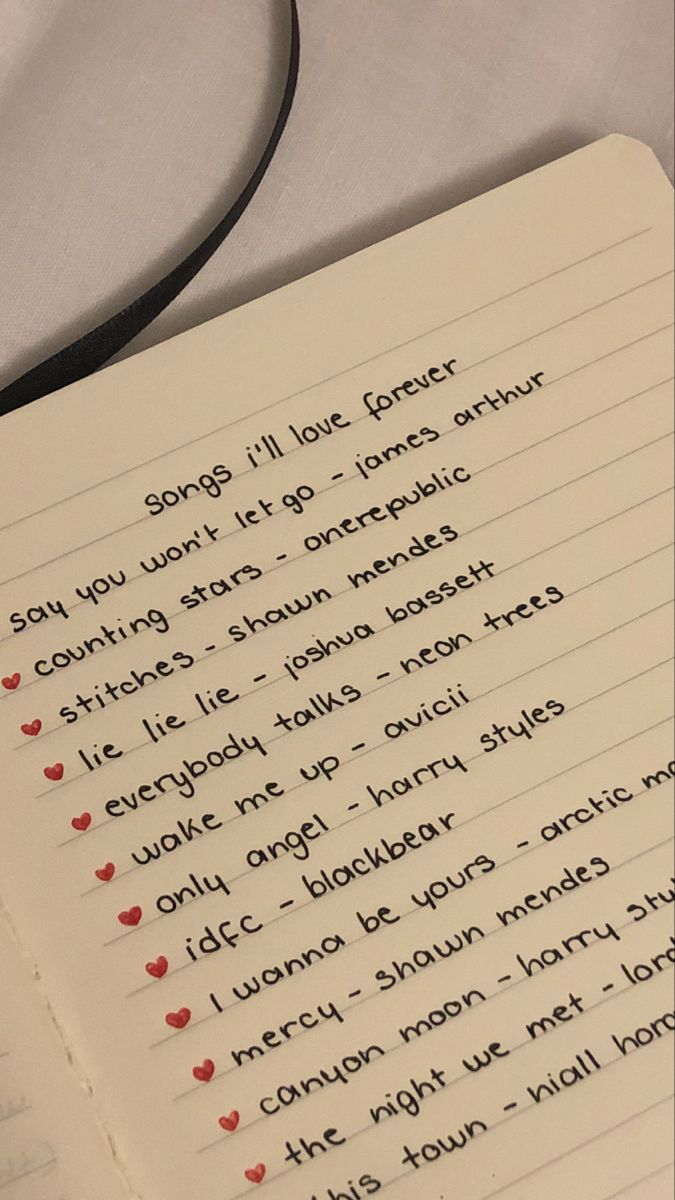 songs i'll love forever
say you won't let go - james arthur
counting stars - onerepublic
stitches - shawn mendes
lie lie lie - joshua bassett
everybody talks - neon trees
wake me up - avicii
only angel - harry styles
idfc - blackbear
I wanna be yours - arctic
mercy - shawn mendes
canyon moon - harry
the night we met -
this town - niall